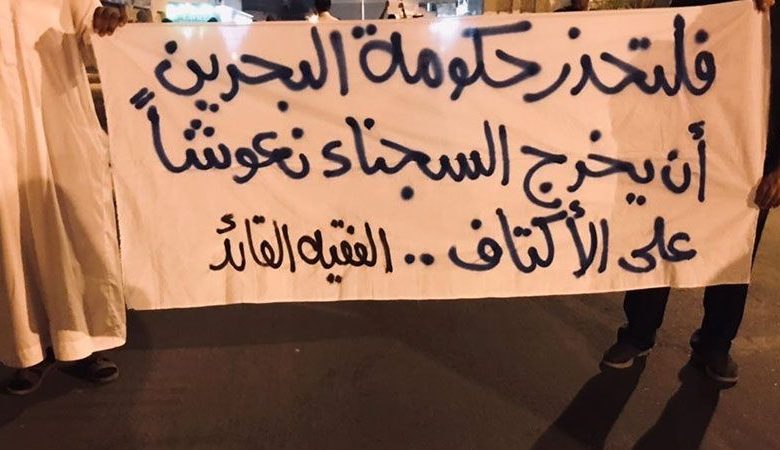 فلتحذر حكومة البحرين
أن يخرج السجناء نعوشاً
على الأكتاف .. الفقيه القائد